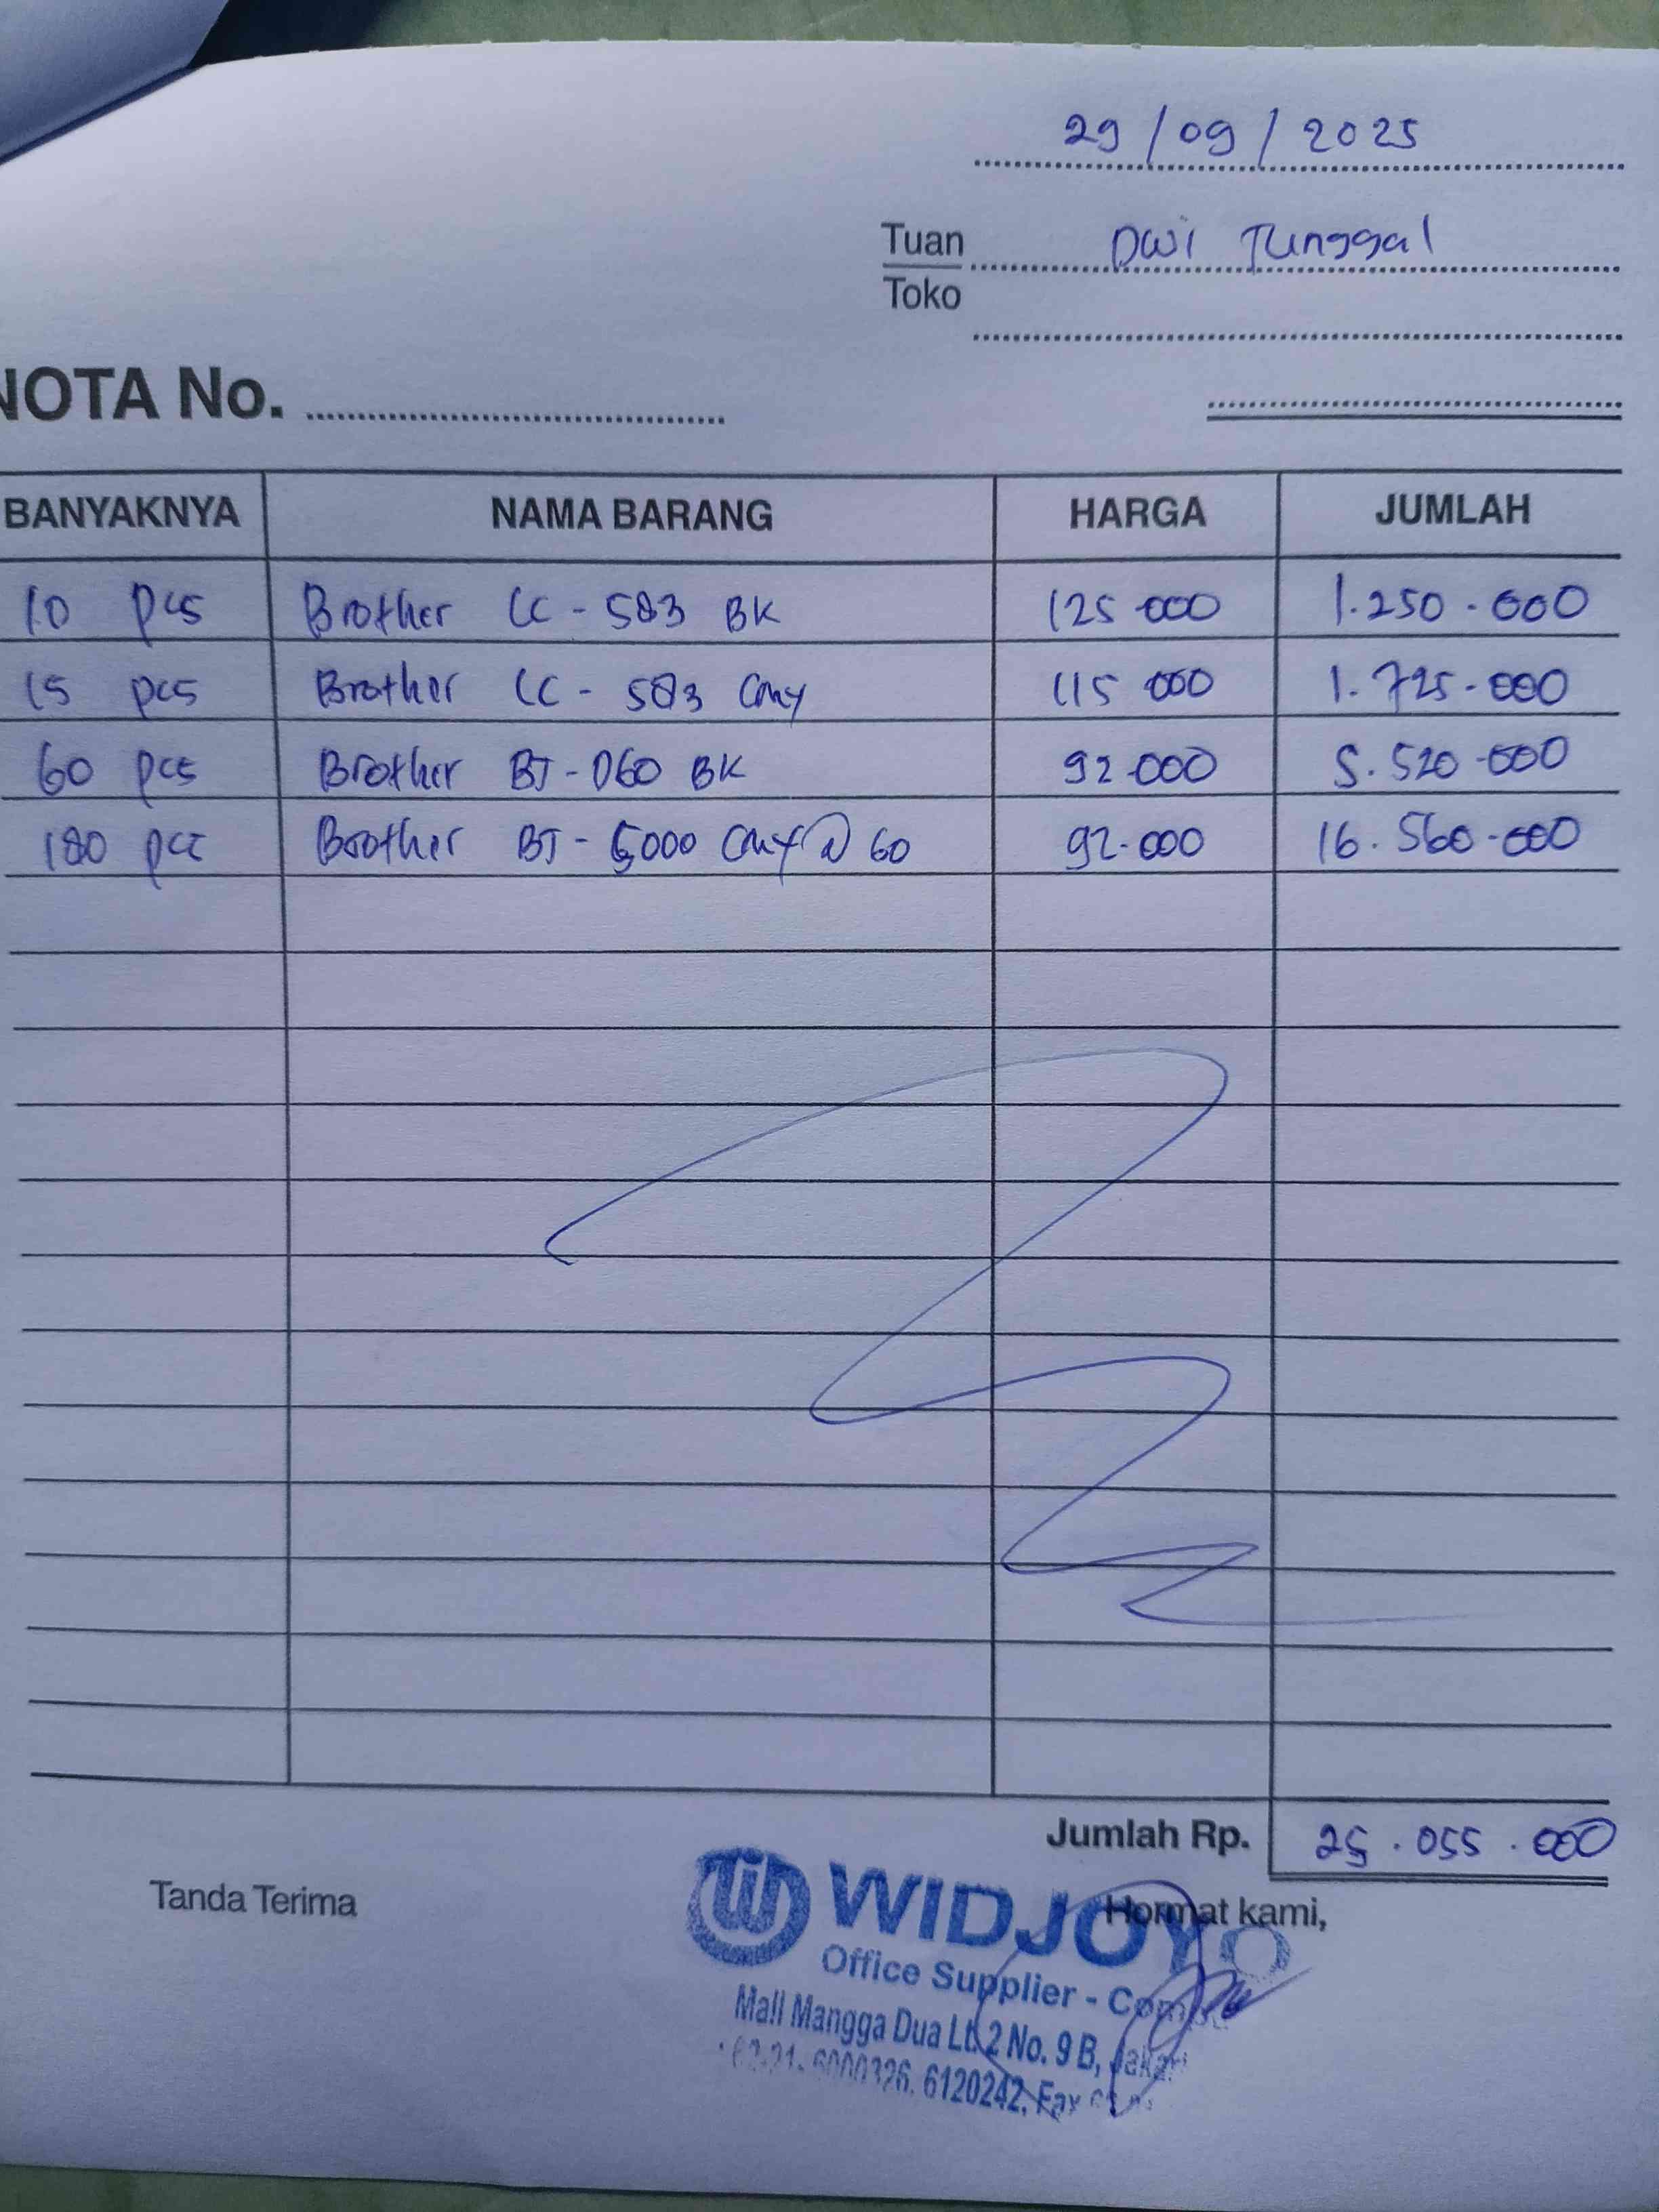 29/09/2025
Tuan Dwi Tunggal
Toko
NOTA No.
BANYAKNYA NAMA BARANG HARGA JUMLAH
10 pcs Brother LC-583 BK 125.000 1.250.000
15 pcs Brother LC-583 CMY 115.000 1.725.000
60 pcs Brother BT-D60 BK 92.000 5.520.000
180 pcs Brother BT-5000 CMY @ 60 92.000 16.560.000
Jumlah Rp. 25.055.000
Tanda Terima Hormat kami,
WIDJOYO
Office Supplier -
Mall Mangga Dua Lt. 2 No. 9 B,
6120242, Fax